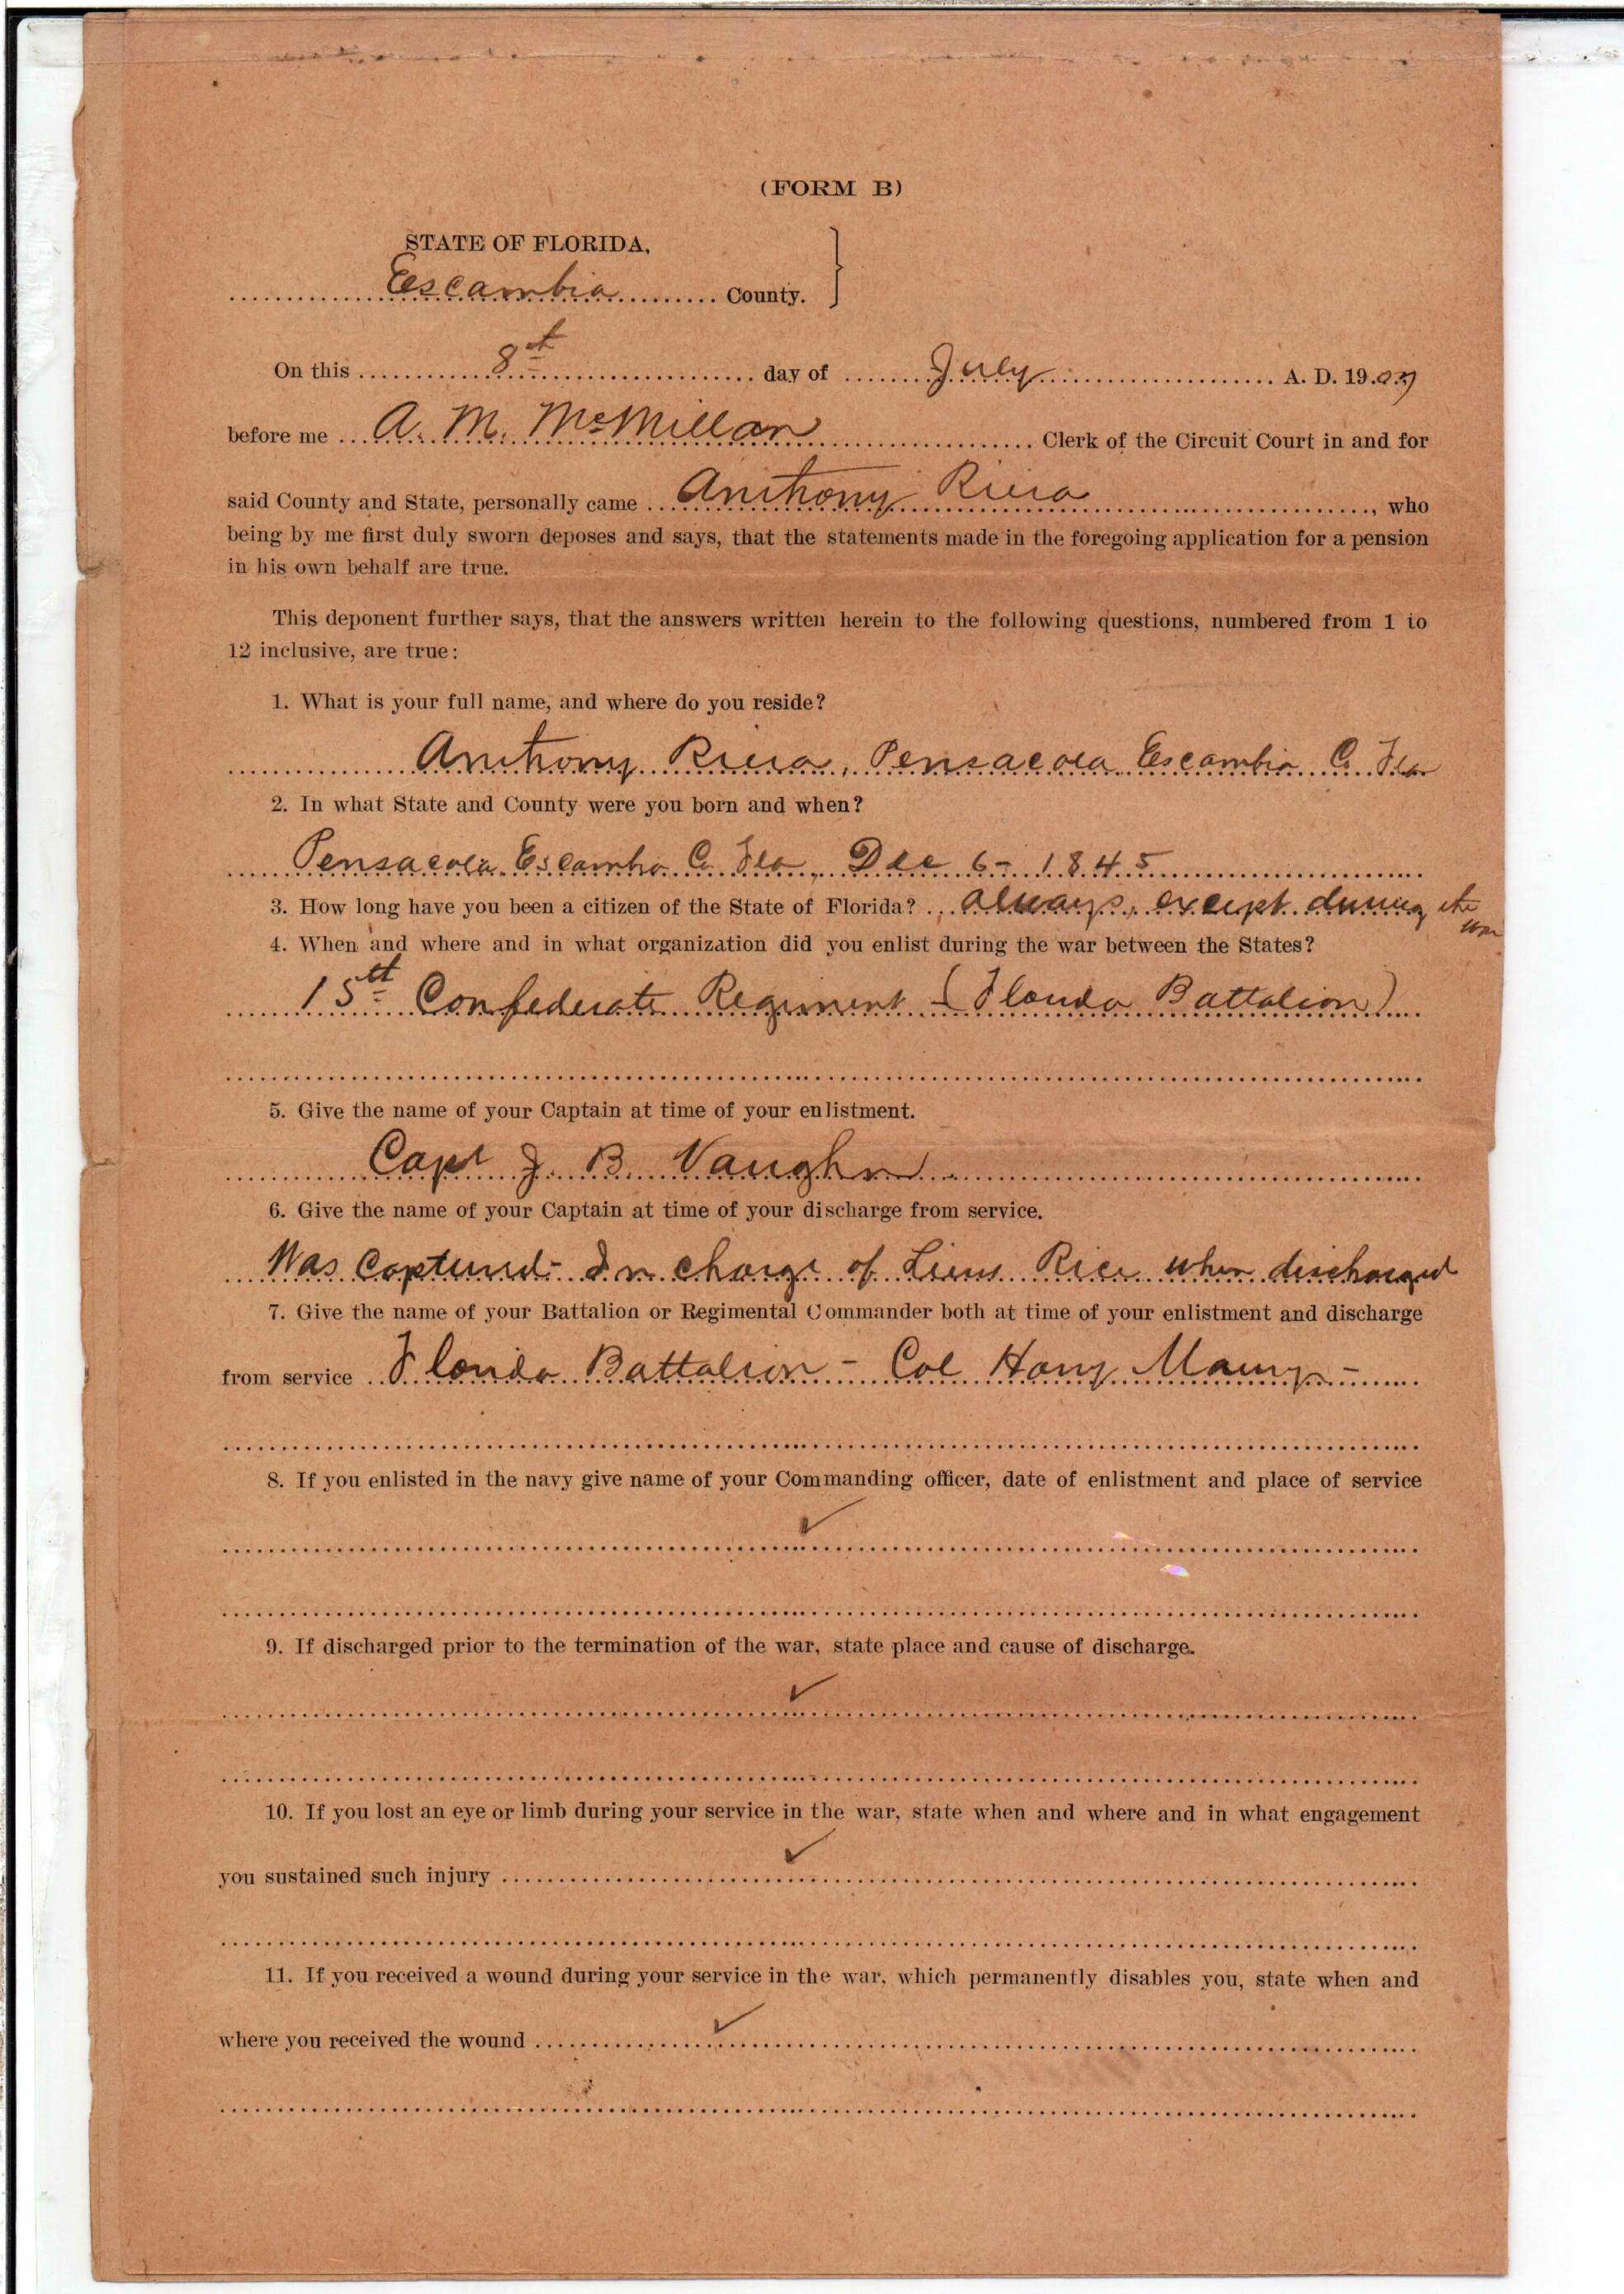 (FORM B)
STATE OF FLORIDA,
Escambia County.
On this 8th day of July A. D. 1907
before me A. M. McMillan Clerk of the Circuit Court in and for
said County and State, personally came Anthony Riera, who
being by me first duly sworn deposes and says, that the statements made in the foregoing application for a pension
in his own behalf are true.
This deponent further says, that the answers written herein to the following questions, numbered from 1 to
12 inclusive, are true:
1. What is your full name, and where do you reside?
Anthony Riera, Pensacola Escambia Co. Fla
2. In what State and County were you born and when?
Pensacola Escambia Co. Fla, Dec 6 - 1845
3. How long have you been a citizen of the State of Florida? always, except during the war
4. When and where and in what organization did you enlist during the war between the States?
15th Confederate Regiment - (Florida Battalion)
5. Give the name of your Captain at time of your enlistment.
Capt J. B. Vaughn
6. Give the name of your Captain at time of your discharge from service.
Was Captured - In charge of Lieut Rice when discharged
7. Give the name of your Battalion or Regimental Commander both at time of your enlistment and discharge
from service Florida Battalion - Col Harry Maury -
8. If you enlisted in the navy give name of your Commanding officer, date of enlistment and place of service
9. If discharged prior to the termination of the war, state place and cause of discharge.
10. If you lost an eye or limb during your service in the war, state when and where and in what engagement
you sustained such injury
11. If you received a wound during your service in the war, which permanently disables you, state when and
where you received the wound